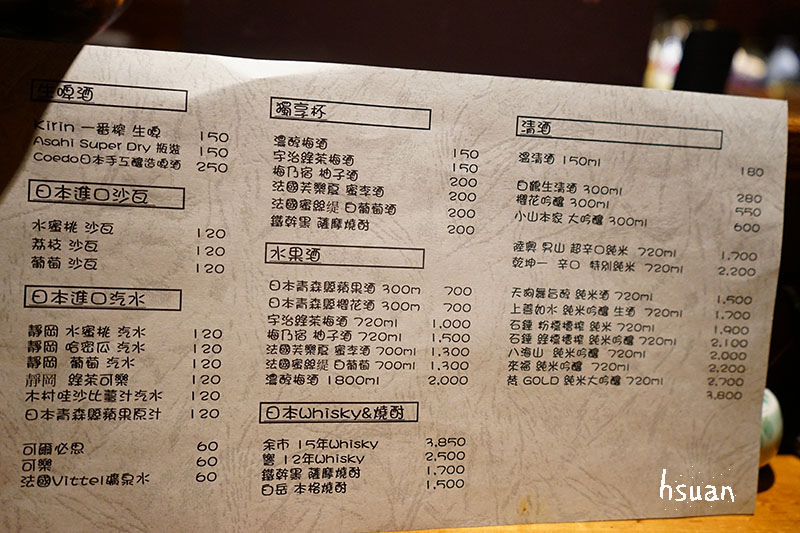 生啤酒
Kirin 一番榨 生啤 150
Asahi Super Dry 瓶裝 150
Coedo日本手工釀造啤酒 250
日本進口沙瓦
水蜜桃 沙瓦 120
荔枝 沙瓦 120
葡萄 沙瓦 120
日本進口汽水
靜岡 水蜜桃 汽水 120
靜岡 哈密瓜 汽水 120
靜岡 葡萄 汽水 120
靜岡 綠茶可樂 120
木村哇沙比薑汁汽水 120
日本青森縣蘋果原汁 120
可爾必思 60
可樂 60
法國Vittel礦泉水 60
獨享杯
濃醇梅酒 150
宇治綠茶梅酒 150
梅乃宿 柚子酒 200
法國芙樂夏 蜜李酒 200
法國蜜絲緹 白葡萄酒 200
鐵幹黑 薩摩燒酎 200
水果酒
日本青森縣蘋果酒 300m 700
日本青森縣櫻花酒 300m 700
宇治綠茶梅酒 720ml 1,000
梅乃宿 柚子酒 720ml 1,500
法國芙樂夏 蜜李酒 700ml 1,300
法國蜜絲緹 白葡萄酒 700ml 1,300
濃醇梅酒 1800ml 2,000
日本Whisky&燒酎
余市 15年Whisky 3,850
響 12年Whisky 2,500
鐵幹黑 薩摩燒酎 1,700
白岳 本格燒酎 1,500
清酒
溫清酒 150ml 180
白鶴生清酒 300ml 280
櫻花吟釀 300ml 550
小山本家 大吟釀 300ml 600
陸奧 男山 超辛口純米 720ml 1,700
乾坤一 辛口 特別純米 720ml 2,200
天狗舞旨醇 純米酒 720ml 1,500
上善如水 純米吟釀 生酒 720ml 1,700
石鎚 粉標槽榨 純米 720ml 1,900
石鎚 綠標槽榨 純米吟釀 720ml 2,100
八海山 純米吟釀 720ml 2,000
來福 純米吟釀 720ml 2,200
梵 GOLD 純米大吟釀 720ml 2,700
3,800
hsuan